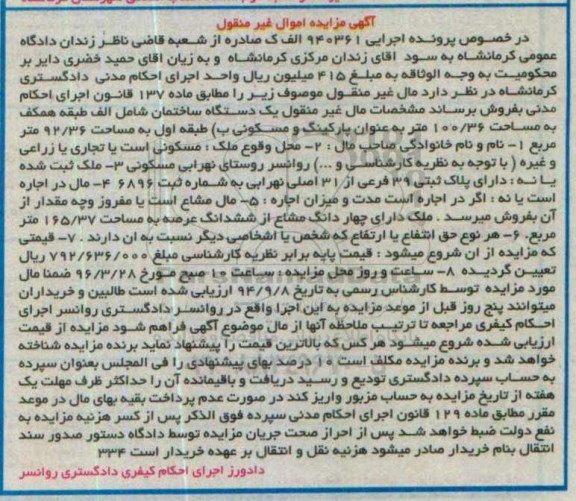 آگهی مزایده اموال غیر منقول
در خصوص پرونده اجرایی ۹۴۰۳۶۱ الف ک صادره از شعبه قاضی ناظر زندان دادگاه
عمومی کرمانشاه به سود آقای زندان مرکزی کرمانشاه و به زیان اقای حمید خضری دایر بر
محکومیت به وجه الوثاقه به مبلغ ۴۱۵ میلیون ریال واحد اجرای احکام مدنی دادگستری
کرمانشاه در نظر دارد مال غیر منقول موصوف زیر را مطابق ماده ۱۳۷ قانون اجرای احکام
مدنی بفروش برساند مشخصات مال غیر منقول یک دستگاه ساختمان شامل الف طبقه همکف
به مساحت ۱۰۰/۳۶ متر به عنوان پارکینگ و مسکونی ب) طبقه اول به مساحت ۹۲/۳۶ متر
مربع ۱- نام و نام خانوادگی صاحب مال : ۲- محل وقوع ملک : مسکونی است یا تجاری یا زراعی
و غیره ( با توجه به نظریه کارشناسی و ...) روانسر روستای نهرابی مسکونی ۳- ملک ثبت شده
یا نه : دارای پلاک ثبتی ۳۹ فرعی از ۳۱ اصلی نهرابی به شماره ثبت ۶۸۹۶ ۴- مال در اجاره
است یا نه : اگر در اجاره است مدت و میزان اجاره : ۵- مال مشاع است یا مفروز وچه مقدار از
آن بفروش میرسد . ملک دارای چهار دانگ مشاع از ششدانگ عرصه به مساحت ۱۶۵/۳۷ متر
مربع. ۶- هر نوع حق انتفاع یا ارتفاع که شخص یا اشخاصی دیگر نسبت به ان دارند . ۷- قیمتی
که مزایده از ان شروع میشود : قیمت پایه برابر نظریه کارشناسی مبلغ ۷۹۲/۶۳۶/۰۰۰ ریال
تعیین گردیده ۸- ساعت و روز محل مزایده : ساعت ۱۰ صبح مورخ ۹۶/۳/۲۸ ضمنا مال
مورد مزایده توسط کارشناس رسمی به تاریخ ۹۴/۹/۸ ارزیابی شده است طالبین و خریداران
میتوانند پنج روز قبل از موعد مزایده به این اجرا واقع در روانسر دادگستری روانسر اجرای
احکام کیفری مراجعه تا ترتیب ملاحظه آنها از مال موضوع آگهی فراهم شود مزایده از قیمت
ارزیابی شده شروع میشود هر کس که بالاترین قیمت را پیشنهاد نماید برنده مزایده شناخته
خواهد شد و برنده مزایده مکلف است ۱۰ درصد بهای پیشنهادی را فی المجلس بعنوان سپرده
به حساب سپرده دادگستری تودیع و رسید دریافت و باقیمانده آن را حداکثر ظرف مهلت یک
هفته از تاریخ مزایده به حساب مزبور واریز کند در صورت عدم پرداخت بقیه بهای مال در موعد
مقرر مطابق ماده ۱۲۹ قانون اجرای احکام مدنی سپرده فوق الذکر پس از کسر هزینه مزایده به
نفع دولت ضبط خواهد شد پس از احراز صحت جریان مزایده توسط دادگاه دستور صدور سند
انتقال بنام خریدار صادر میشود هزینه نقل و انتقال بر عهده خریدار است ۳۳۴
دادورز اجرای احکام کیفری دادگستری روانسر